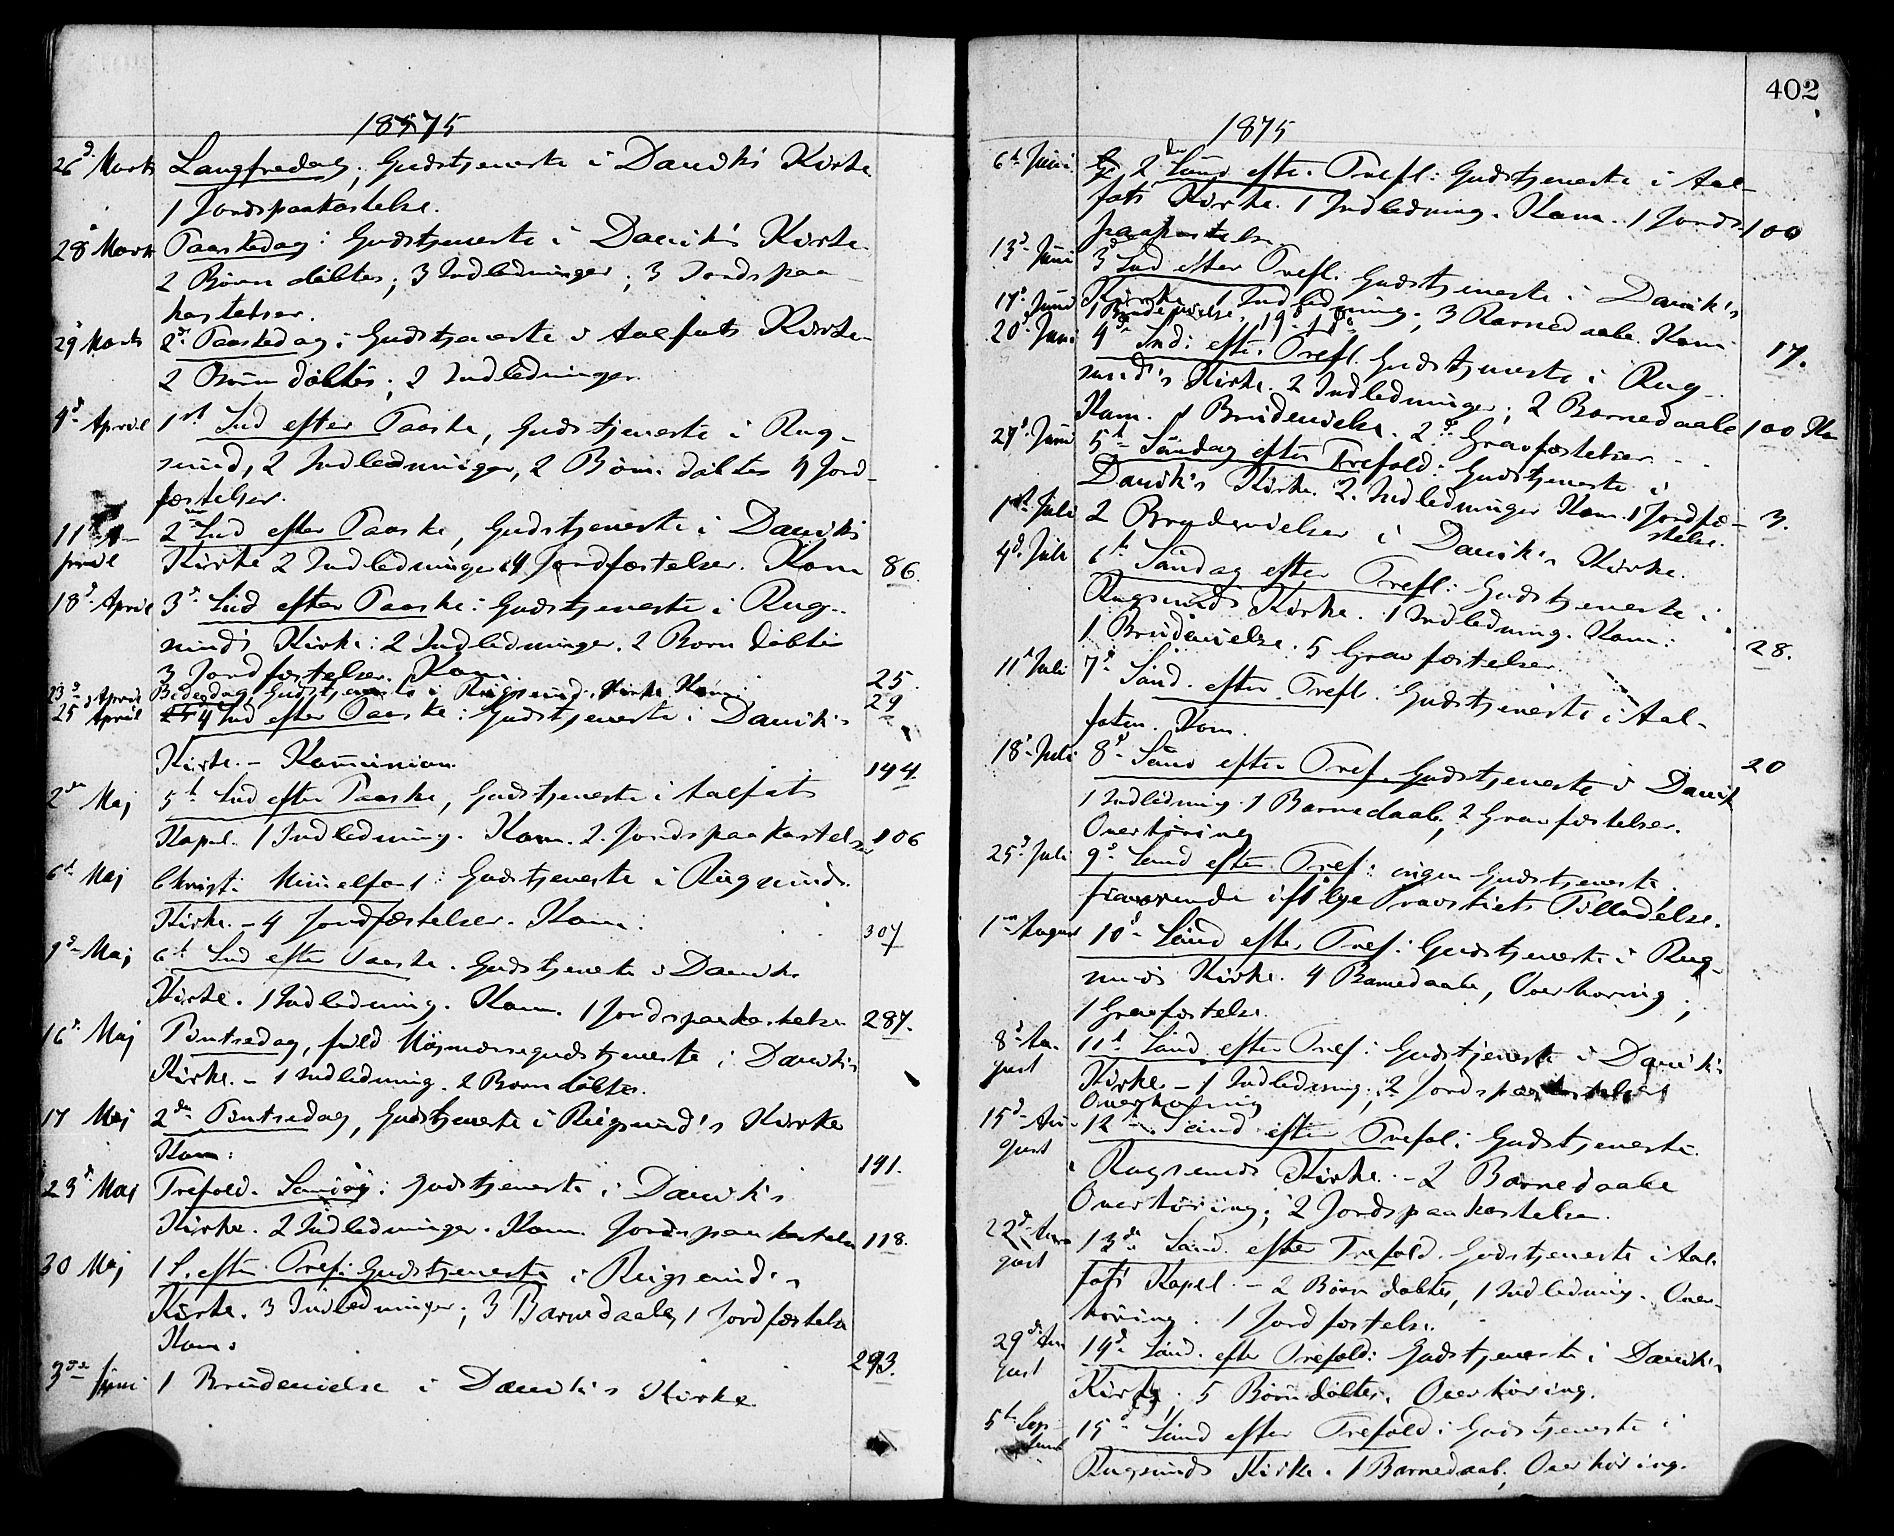 1875
26 Marts Langfredag; Gudstjeneste i Davik's Kirke
1 Jordspaakastelse.
28 Marts Paaskedag: Gudstjeneste i Davik's Kirke
2 Børn døbtes; 3 Indledninger; 3 Jordspaa-
kastelser.
29 Marts 2den Paaskedag: Gudstjeneste i Aalfots Kirke
2 Børn døbtes; 2 Indledninger.
4d April 1st Sud efter Paaske, Gudstjeneste i Rug-
sund, 2 Indledninger, 2 Børn døbtes 4 Jord-
fæstelser.
11 A- 2 Sud efter Paaske, Gudstjeneste i Daviks
pril Kirke 2 Indledninger 4 Jordfæstelser. Kom 86.
18d April 3d Sud efter Paaske: Gudstjeneste i Rug-
sund's Kirke: 2 Indledninger. 2 Børn døbtes
3 Jordfæstelser. Kom. 25
23d April Bededag Gudstjeneste i Rugsund. Kirke Kom: 29
25 April 4 Sud efter Paaske: Gudstjeneste i Davik's
Kirke. - Kommunion 144
2den Maj 5th Sud efter Paaske, Gudstjeneste i Aalfots
Kapel. 1 Indledning. Kom. 2. Jordspaakastelser 106
6th Maj Christi Himmelfart: Gudstjeneste i Rugsunds
Kirke. - 4 Jordfæstelser. Kom: 307
9d Maj 6th Sud efter Paaske. Gudstjeneste i Daviks
Kirke. 1 Indledning. Kom. 1 Jordspaakastelse 287.
16d Maj Pintsedag, fuld Højmessegudstjeneste i Davik's
Kirke. - 1 Indledning. 2 Børn døbtes.
17 Maj 2den Pintsedag, Gudstjeneste i Rugsund's Kirke
Kom: 191.
23d Maj Trefold. Søndag: Gudstjeneste i Davik's
Kirke. 2 Indledninger. Kom. Jordspaakastelse 118.
30 Maj 1 S. efter Tref: Gudstjeneste i Rugsund's
Kirke. 3 Indledninger; 3 Barnedaab, 1 Jordfæstelse
Kom: 293.
3die Juni 1 Brudevielse i Davik's Kirke
402
1875
6th Juni 2den Sund efter Trefl: Gudstjeneste i Aal-
fots Kirke. 1 Indledning. Kom. 1 Jords- 100
paakastelse
13d Juni 3d Sud efter Trefl. Gudstjeneste i Davik's
Kirke 1 Indledning; 3 Barnedaabe. Kom 17.
17d Juni 1 Brudevielse,
20d Juni 4d Sud: efter Trefl. Gudstjeneste i Rug-
sund's Kirke. 2 Indledninger; 2 Barnedaabe
Kom. 1 Brudevielse. 2 Gravfæstelser. 100
27d Juni 5th Søndag efter Trefold: Gudstjeneste i
Davik's Kirke. 2 Indledninger Kom. 1 Jordfæ- 3.
stelse.
1st Juli 2 Brudevielser i Davik's Kirke.
4d Juli 6th Søndag efter Trefl: Gudstjeneste i
Rugsunds Kirke. 1 Indledning. Kom:
1 Brudevielse. 5 Gravfæstelser. 28.
11d Juli 7d Sønd. efter Trefl. Gudstjeneste i Aal-
foten. Kom. 20
18d Juli 8d Sønd efter Tref. Gudstjeneste i Davik
1 Indledning. 1 Barnedaab, 2 Gravfæstelser.
Overhøring
25d Juli 9d Sund efter Tref: ingen Gudstjeneste.
fraværende ifølge Provstiets Tilladelse.
1ste August 10d Sund efter Tref: Gudstjeneste i Rug-
sunds Kirke. 4 Barnedaabe, Overhøring;
1 Gravfæstelse.
8d Au- 11th Sund efter Tref: Gudstjeneste i Davik's
gust Kirke - 1 Indledning; 2 Jordspaakastelser
Overhøring
15d Au- 12 Sund efter Trefol: Gudstjeneste
gust i Rugsunds Kirke. - 2 Barnedaabe
Overhøring; 2 Jordspaakastelser.
22d Au- 13de Sund. efter Trefold. Gudstjeneste i Aal-
gust fots Kapel. - 2 Børn døbtes, 1 Indledning. Over-
høring. 1 Jordfæstelse.
29d Au 14d Sund. efter Trefold: Gudstjeneste i Davik's
gust Kirke. 5 Børn døbtes. Overhøring.
5th Sep- 15d Sund efter Trefold: Gudstjeneste i
temb Rugsunds Kirke. 1 Barnedaab, Overhøring.